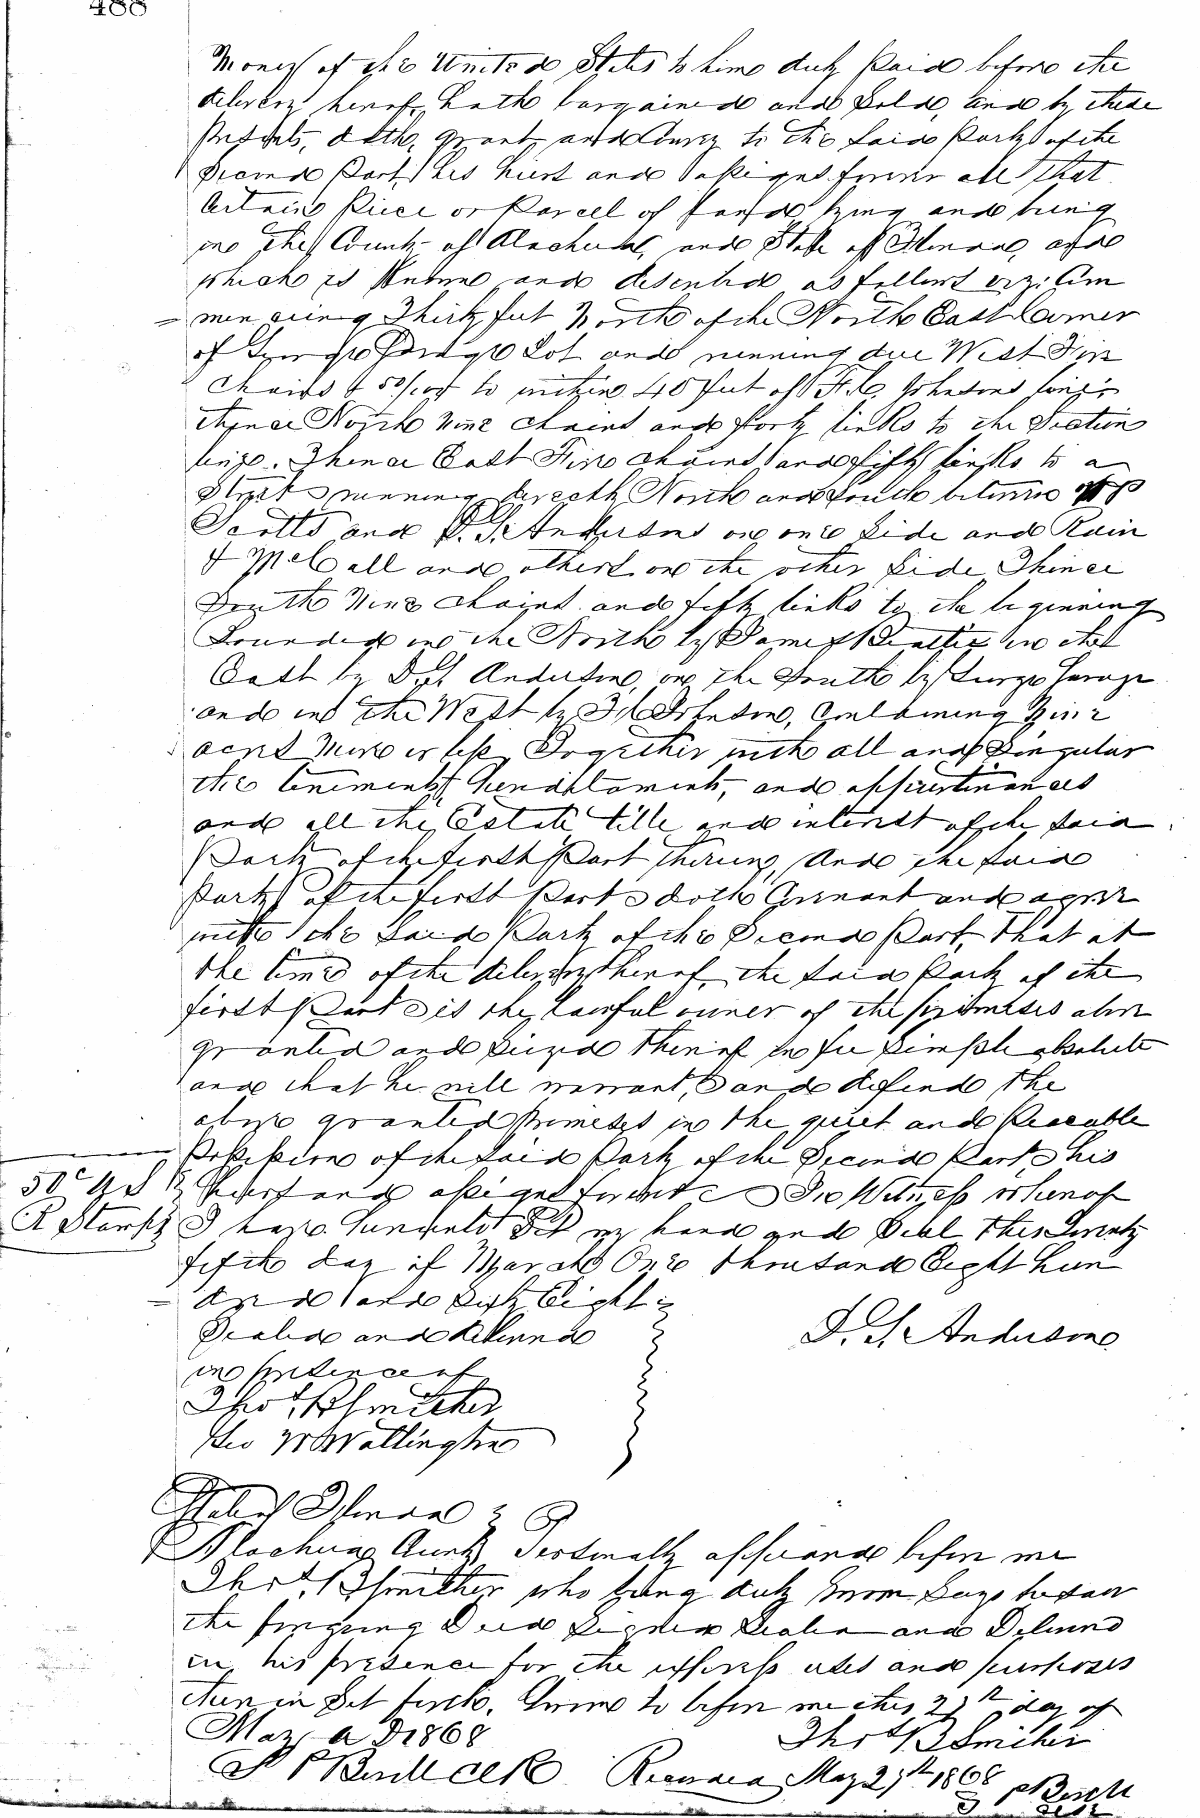 488
Money of the United States to him duly Paid before the
delivery hereof, hath bargained and Sold, and by these
Presents, doth, grant and Convey to the Said Party of the
Second Part, his heirs and assigns forever all that
Certain Piece or Parcell of Land lying and being
in the County of Alachua, and State of Florida, and
which is Known and described as follows viz: Com
= mencing Thirty feet North of the North East Corner
of George Savage Lot and running due West Five
Chains & 50/100 to within 40 feet of F.C. Johnsons line,
thence North Nine chains and forty links to the Section
line. Thence East Five chains and fifty links to a
Street running directly North and South between
Scotts and D. S. Andersons on one Side and Rain
& McCall and others on the other Side, Thence
South Nine chains and fifty links to the beginning
Bounded on the North by James Beattie on the
East by D.S. Anderson, on the South by George Savage
and on the West by F C Johnson, Containing Nine
acres More or less, Together with all and Singular
the tenements, hereditaments, and appurtenances
and all the Estate, title and interest of the Said
Party of the first Part therein, And the Said
Party of the first Part doth Covenant and agree
with the Said Party of the Second Part, that at
the time of the delivery thereof, the Said Party of the
first Part is the lawful owner of the premises above
granted and Seized thereof in fee Simple absolute
and that he will warrant, and defend the
above granted Premises in the quiet and Peacable
Possession of the Said Party of the Second Part, his
50c US
R Stamp
heirs and assigns forever In Witness whereof
I have hereunto Set my hand and Seal this Twenty
fifth day of March One thousand Eight hun
= dred and Sixty Eight
Sealed and delivered
in presence of
D. S. Anderson
Thos. B Smither
Geo W Wallington
State of Florida
Alachua County Personally appeared before me
Thos. B Smither who being duly Sworn Says he saw
the foregoing Deed Signed Sealed and Delivered
in his presence for the express uses and purposes
therein Set forth. Sworn to before me this 27th day of
May A D 1868
Thos B Smither
Clk Recorded May 27th 1868